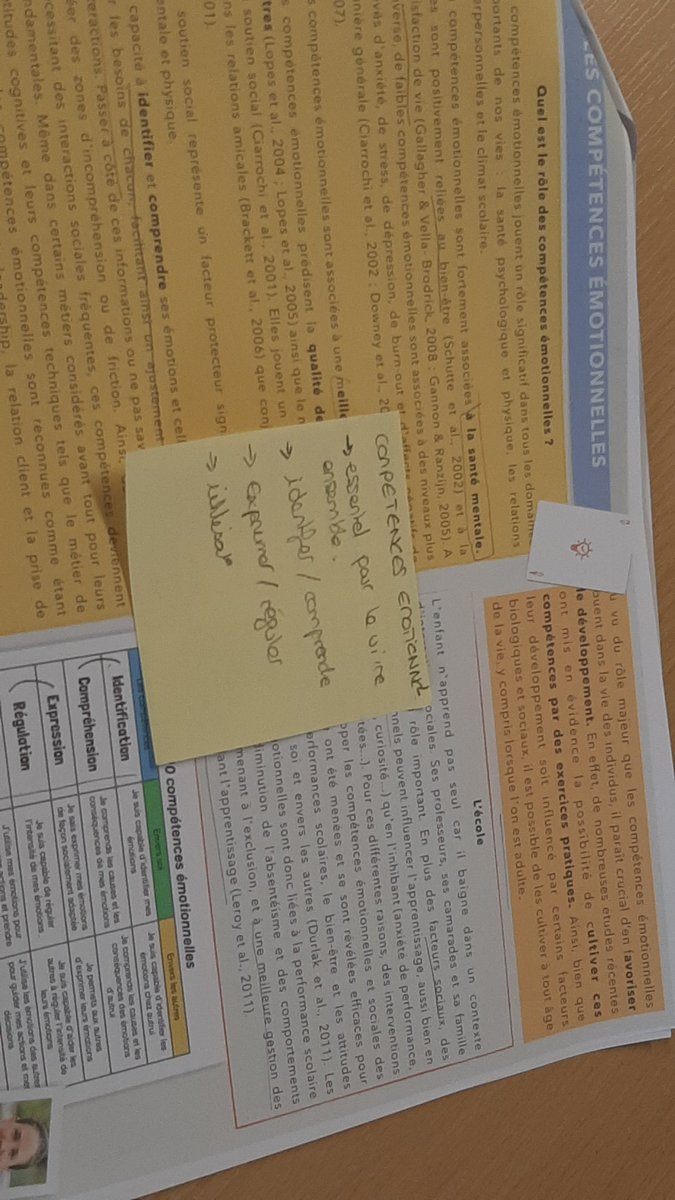 LES COMPÉTENCES ÉMOTIONNELLES
Quel est le rôle des compétences émotionnelles ?
compétences émotionnelles jouent un rôle significatif dans tous les domaines
portants de nos vies : la santé psychologique et physique, les relations
erpersonnelles et le climat scolaire.
compétences émotionnelles sont fortement associées à la santé mentale.
es sont positivement reliées au bien-être (Schutte et al., 2002) et à la
isfaction de vie (Gallagher & Vella-Brodrick, 2008 ; Gannon & Ranzijn, 2005). A
verse, de faibles compétences émotionnelles sont associées à des niveaux plus
vés d'anxiété, de stress, de dépression, de burn-out et d'affects négatifs de
nière générale (Ciarrochi et al., 2002 ; Downey et al., 20
07).
s compétences émotionnelles sont associées à une meille
s compétences émotionnelles prédisent la qualité de
tres (Lopes et al., 2004 ; Lopes et al., 2005) ainsi que le
soutien social (Ciarrochi et al., 2001). Elles jouent un
ns les relations amicales (Brackett et al., 2006) que con
01).
soutien social représente un facteur protecteur sign
entale et physique.
capacité à identifier et comprendre ses émotions et cell
r les besoins de chacun, facilitant ainsi un ajustement
eractions. Passer à côté de ces informations ou ne pas sav
éer des zones d'incompréhension ou de friction. Ainsi,
cessitant des interactions sociales fréquentes, ces compétences deviennent
ndamentales. Même dans certains métiers considérés avant tout pour leurs
titudes cognitives et leurs compétences techniques tels que le métier de
compétences émotionnelles sont reconnues comme étant
leadership, la relation client et la prise de
COMPÉTENCES EMOTIONNEL
→ essentiel pour le vivre
ensemble.
→ identifier / comprendre
→ exprimer / réguler
→ utiliser
u vu du rôle majeur que les compétences émotionnelles
ouent dans la vie des individus, il paraît crucial d'en favoriser
le développement. En effet, de nombreuses études récentes
ont mis en évidence la possibilité de cultiver ces
compétences par des exercices pratiques. Ainsi, bien que
leur développement soit influencé par certains facteurs
biologiques et sociaux, il est possible de les cultiver à tout âge
de la vie, y compris lorsque l'on est adulte.
L'école
L'enfant n'apprend pas seul car il baigne dans un contexte
ociales. Ses professeurs, ses camarades et sa famille
rôle important. En plus des facteurs sociaux, des
nnels peuvent influencer l'apprentissage, aussi bien en
curiosité...) qu'en l'inhibant (anxiété de performance,
tées...). Pour ces différentes raisons, des interventions
pper les compétences émotionnelles et sociales des
ont été menées et se sont révélées efficaces pour
erformances scolaires, le bien-être et les attitudes
soi et envers les autres (Durlak et al., 2011). Les
otionnelles sont donc liées à la performance scolaire
iminution de l'absentéisme et des comportements
menant à l'exclusion, et à une meilleure gestion des
ant l'apprentissage (Leroy et al., 2011).
0 compétences émotionnelles
Envers soi
Envers les autres
Identification
Je suis capable d'identifier mes
émotions
Je suis capable d'identifier les
émotions chez autrui
Compréhension
Je comprends les causes et les
conséquences de mes émotions
Je comprends les causes et les
conséquences des émotions
d'autrui
Expression
Je sais exprimer mes émotions
de façon socialement adaptée
Je permets aux autres
d'exprimer leurs émotions
Régulation
Je suis capable de réguler
l'intensité de mes émotions
Je suis capable d'aider les
autres à réguler l'intensité de
leurs émotions
J'utilise mes émotions pour
J'utilise les émotions des autres
pour guider mes actions et mes
décisions